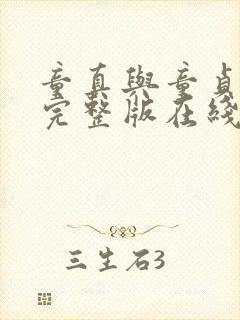 童真與童貞
完整版在綫
三生石3